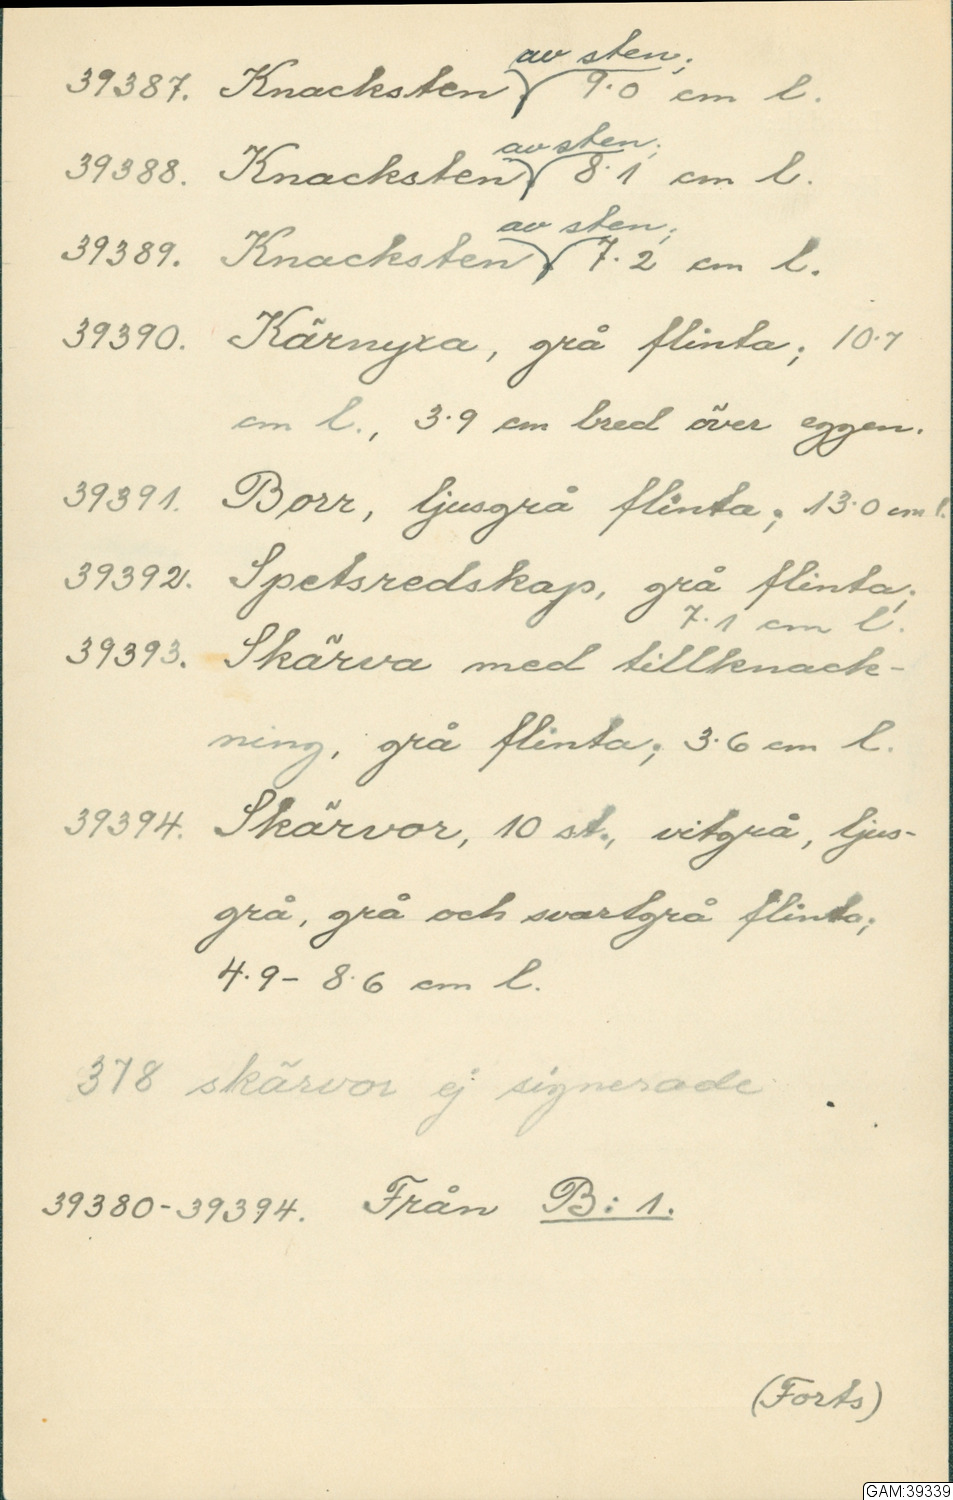 39387. Knacksten av sten; 9.0 cm l.
39388. Knacksten av sten; 8.1 cm l.
39389. Knacksten av sten; 7.2 cm l.
39390. Kärnyxa, grå flinta; 10.7
cm l., 3.9 cm bred över eggen.
39391. Borr, ljusgrå flinta; 13.0 cm l.
39392. Spetsredskap, grå flinta;
7.1 cm l.
39393. Skärva med tillknack-
ning, grå flinta; 3.6 cm l.
39394. Skärvor, 10 st., vitgrå, ljus-
grå, grå och svartgrå flinta;
4.9- 8.6 cm l.
378 skärvor ej signerade
39380-39394. Från B: 1.
(Forts)
GAM:39339